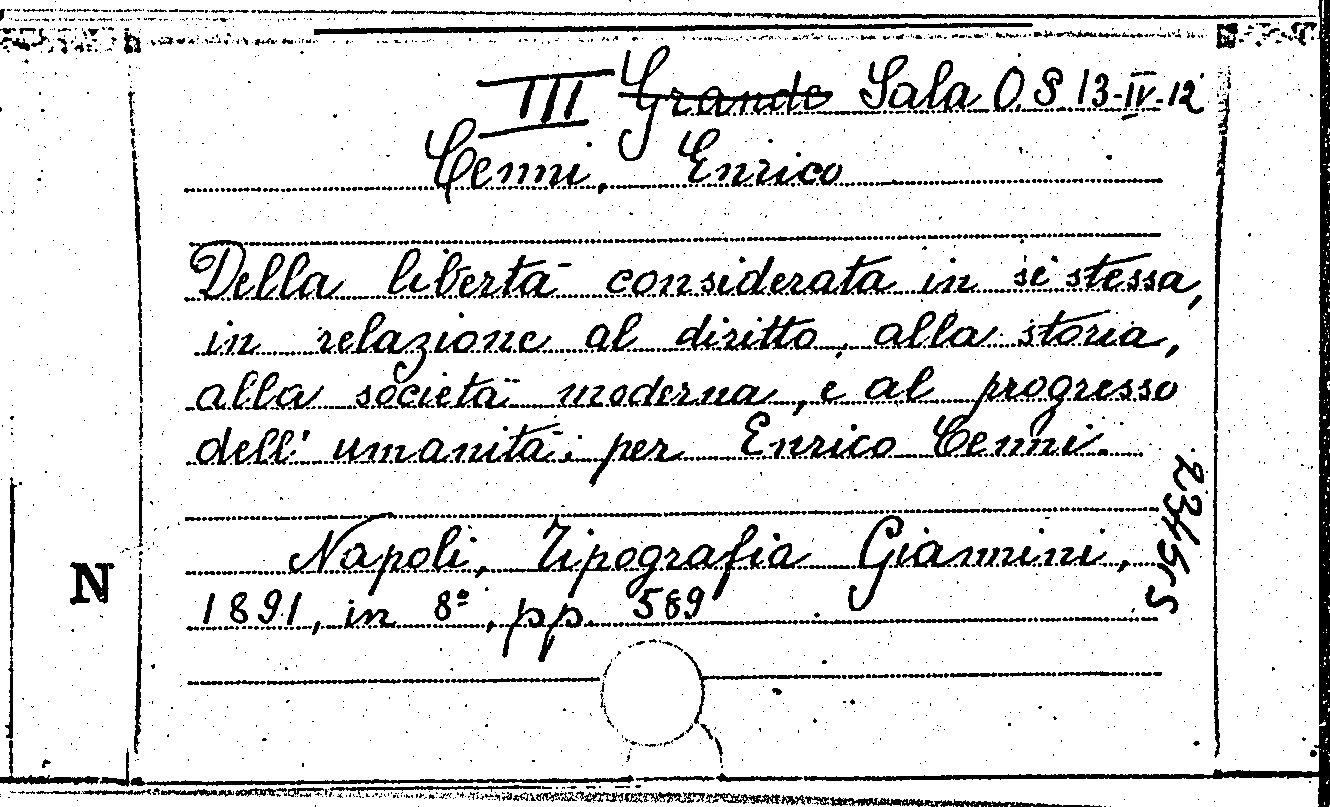 III Grande Sala O. S 13-IV-12
Cenni, Enrico
Della libertà considerata in sè stessa,
in relazione al diritto, alla storia,
alla società moderna, e al progresso
dell' umanità; per Enrico Cenni.
Napoli, Tipografia Giannini,
1891, in 8º, pp. 589
N